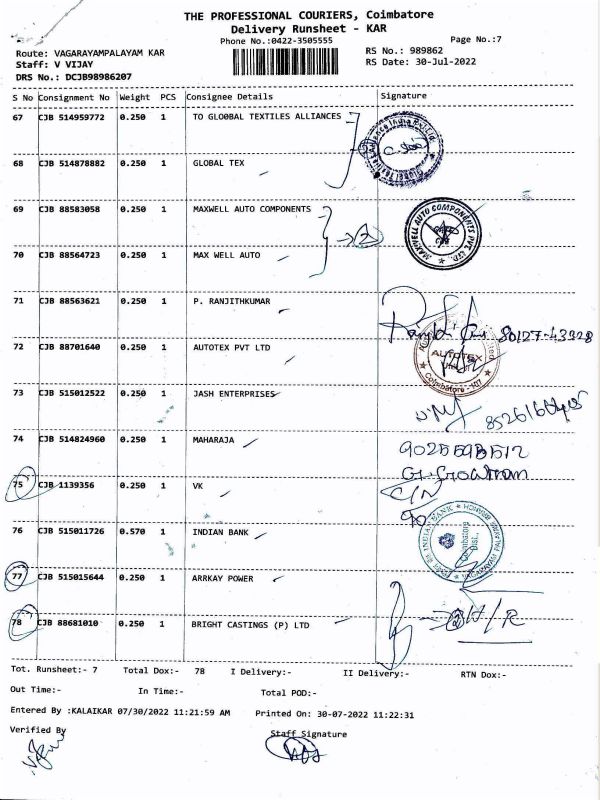 THE PROFESSIONAL COURIERS, Coimbatore
Delivery Runsheet - KAR
Phone No.:0422-3505555
Page No.:7
Route: VAGARAYAMPALAYAM KAR
RS No.: 989862
Staff: V VIJAY
RS Date: 30-Jul-2022
DRS No.: DCJB98986207
S No Consignment No Weight PCS Consignee Details Signature
67 CJB 514959772 0.250 1 TO GLOOBAL TEXTILES ALLIANCES
68 CJB 514878882 0.250 1 GLOBAL TEX
69 CJB 88583058 0.250 1 MAXWELL AUTO COMPONENTS
MAXWELL AUTO COMPONENTS PVT. LTD.
70 CJB 88564723 0.250 1 MAX WELL AUTO
2
71 CJB 88563621 0.250 1 P. RANJITHKUMAR
80127-43928
72 CJB 88701640 0.250 1 AUTOTEX PVT LTD
AUTOTEX
Coimbatore
73 CJB 515012522 0.250 1 JASH ENTERPRISES
74 CJB 514824960 0.250 1 MAHARAJA
G. Gowtham
75 CJB 1139356 0.250 1 VK
C/N
76 CJB 515011726 0.570 1 INDIAN BANK
INDIAN BANK
Coimbatore Dist.
77 CJB 515015644 0.250 1 ARRKAY POWER
78 CJB 88681010 0.250 1 BRIGHT CASTINGS (P) LTD
2 H/R
Tot. Runsheet:- 7 Total Dox:- 78 I Delivery:- II Delivery:- RTN Dox:-
Out Time:- In Time:- Total POD:-
Entered By :KALAIKAR 07/30/2022 11:21:59 AM Printed On: 30-07-2022 11:22:31
Verified By Staff Signature